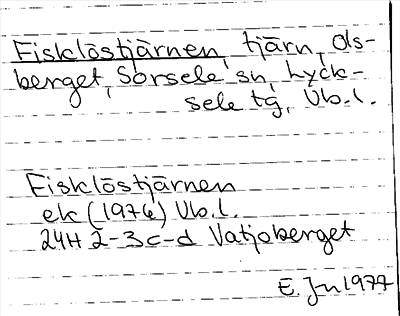 Fisklöstjärnen, tjärn, Ols-
berget, Sorsele sn, Lyck-
sele tg, Vb.l.
Fisklöstjärnen
ek (1976) Vb.l.
24H 2-3c-d Vatjoberget
E. Jn 1977